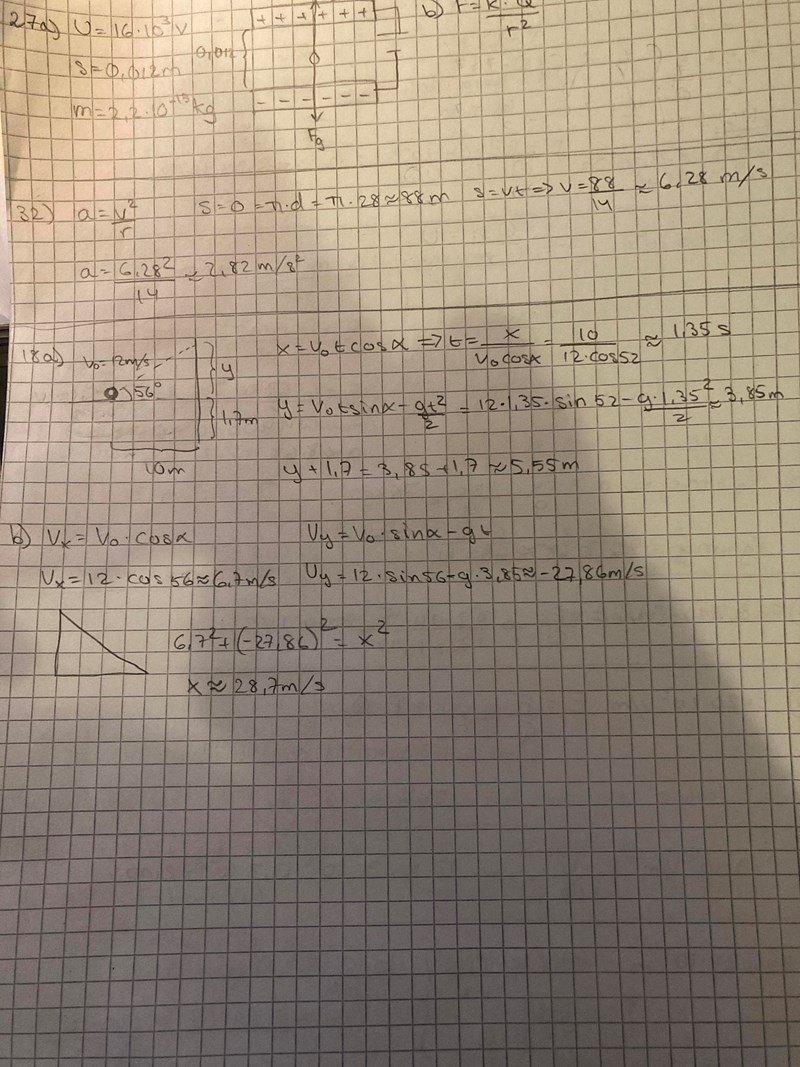 27a) U=16·10³V
+ + + + + +
b) F=k·Q/r²
s=0,012m
0,012
m=2,2·10⁻¹³kg
- - - - - -
Fg
32) a=v²/r s=O=π·d=π·28≈88m s=vt=>v=88/14≈6,28 m/s
a=6,28²/14≈2,82m/s²
18a) v₀=12m/s y x=v₀tcosα=>t=x/v₀cosα=10/12·cos52≈1,35s
56°
1,7m y=v₀tsinα-gt²/2=12·1,35·sin 52-g·1,35²/2≈3,85m
10m y+1,7=3,85+1,7≈5,55m
b) Vx=V₀·cosα Vy=V₀·sinα-gt
Vx=12·cos56≈6,7m/s Vy=12·sin56-g·3,85≈-27,86m/s
6,7²+(-27,86)²=x²
x≈28,7m/s